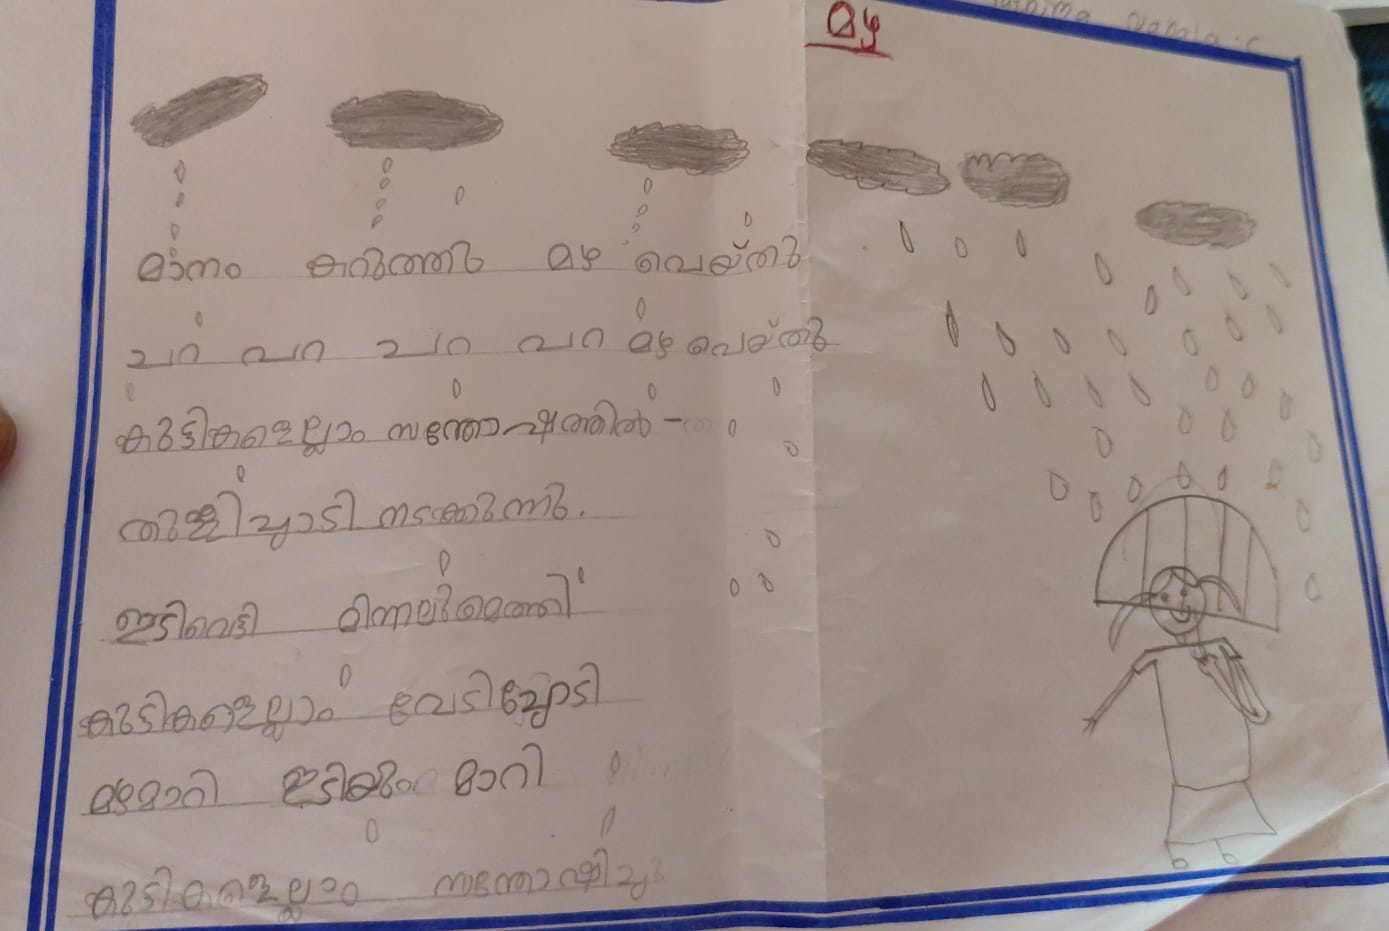 മഴ
മാനം കറുത്തു മഴ പെയ്തു
ചറ പറ ചറ പറ മഴ പെയ്തു
കുട്ടികളെല്ലാം സന്തോഷത്തിൽ -
തുള്ളിച്ചാടി നടക്കുന്നു.
ഇടിവെട്ടി മിന്നലുമെത്തി
കുട്ടികളെല്ലാം പേടിച്ചോടി
മഴമാറി ഇടിയും മാറി
കുട്ടികളെല്ലാം സന്തോഷിച്ചു